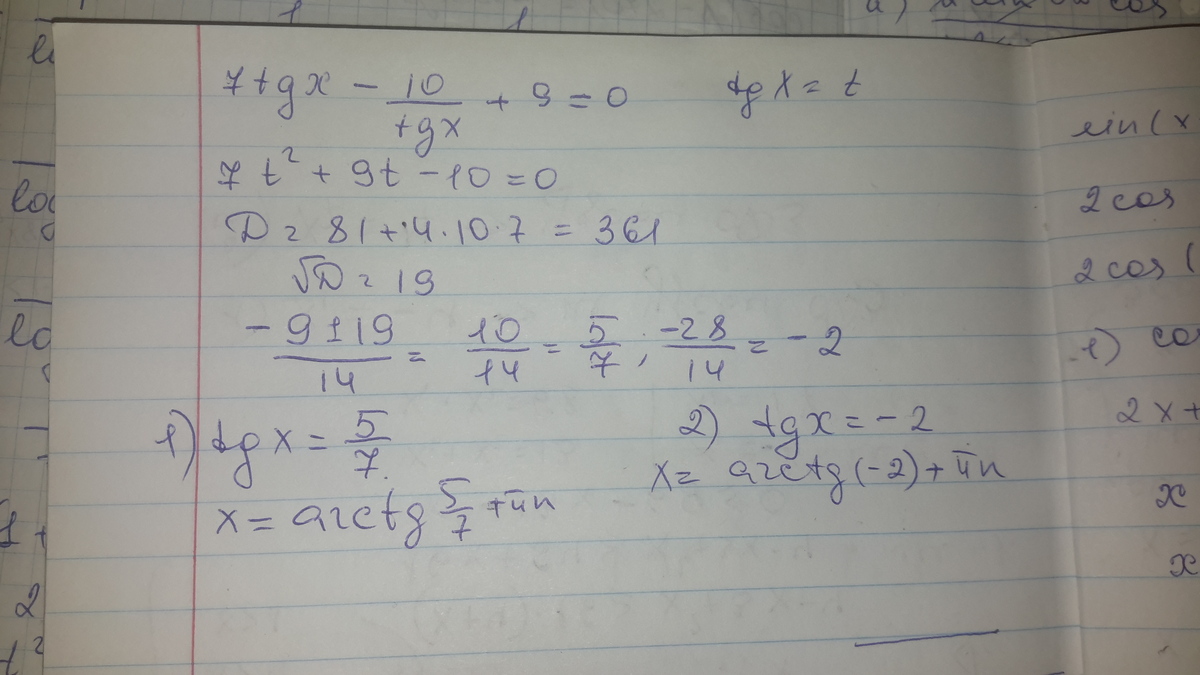 7tgx - 10/tgx + 9 = 0    tgx = t
7t² + 9t - 10 = 0
D = 81 + 4·10·7 = 361
√D = 19
(-9 ± 19)/14 = 10/14 = 5/7; -28/14 = -2
1) tgx = 5/7    2) tgx = -2
x = arctg 5/7 + πn    x = arctg(-2) + πn
sin(x
2cos
2cos(
1) co
2x+
x
x
log
2
t²